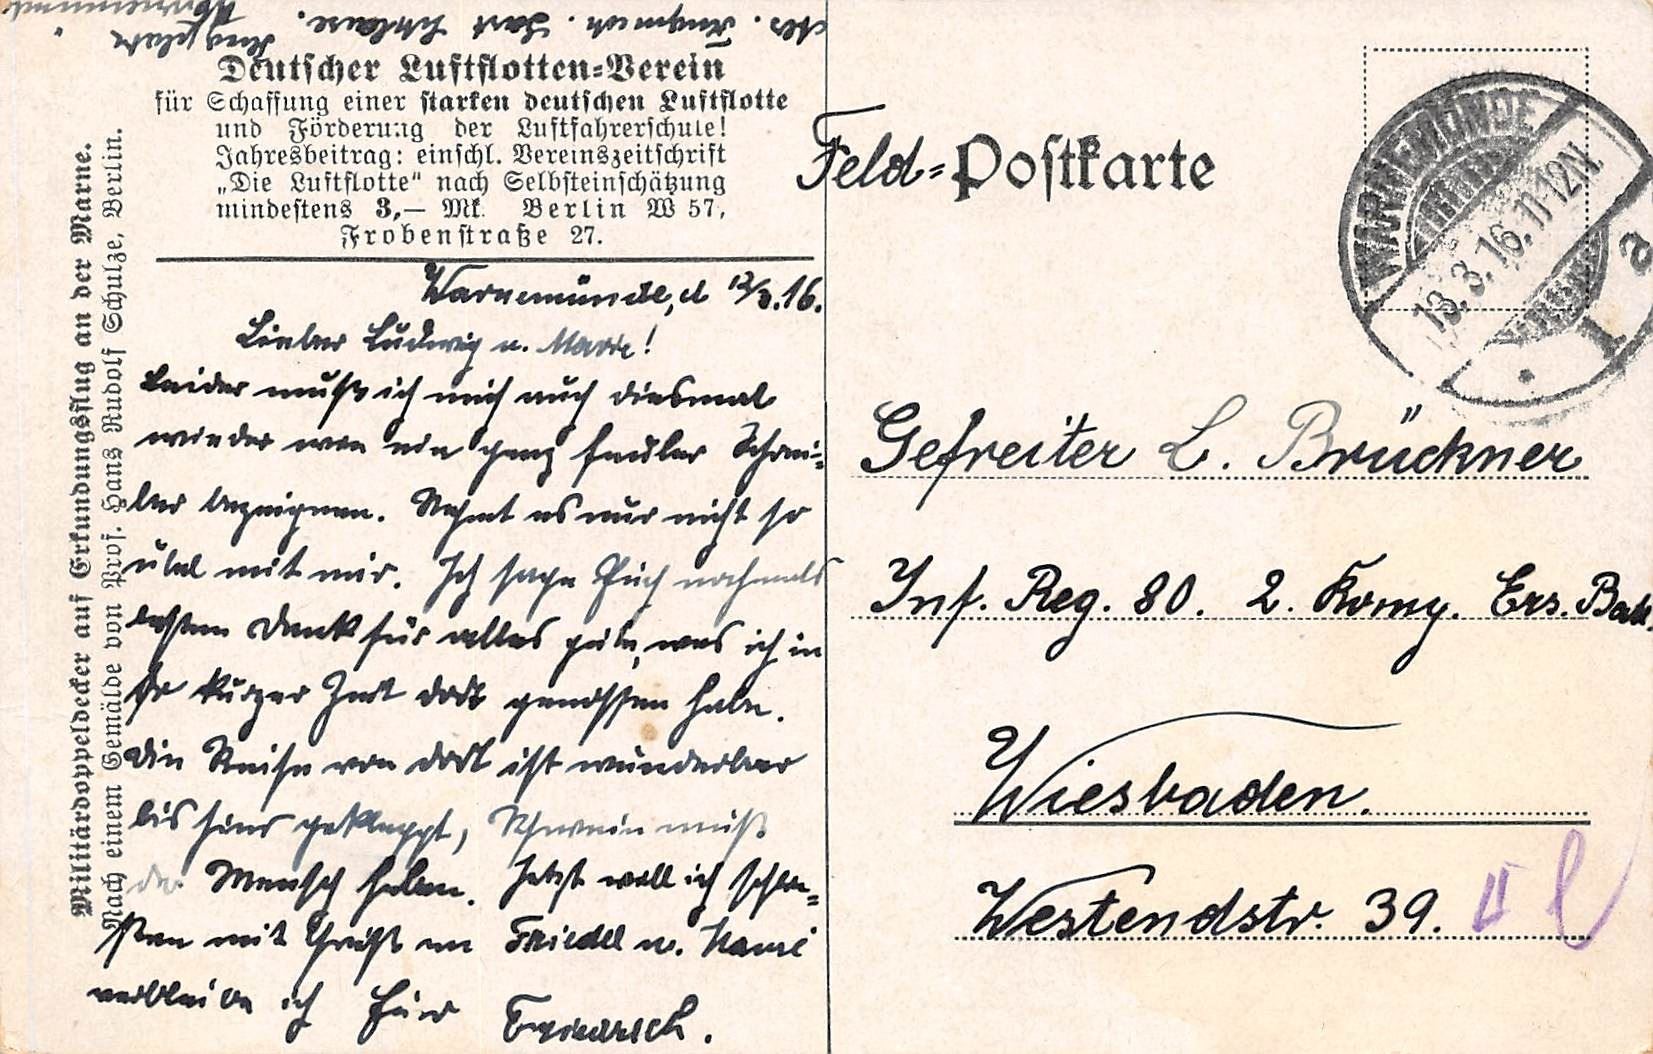 Deutscher Luftflotten-Verein
für Schaffung einer starken deutschen Luftflotte
und Förderung der Luftfahrerschule!
Jahresbeitrag: einschl. Vereinszeitschrift
„Die Luftflotte" nach Selbsteinschätzung
mindestens 3,— Mk. Berlin W 57,
Frobenstraße 27.
Militärdoppeldecker auf Erkundungsflug an der Marne.
Nach einem Gemälde von Prof. Hans Rudolf Schulze, Berlin.
Warnemünde, d 12/3.16.
Lieber Ludwig u. Marie!
Leider muß ich mich auch diesmal
wieder von ein ganz fauler Schrei-
ber bezeignen. Nehmt es nur nicht so
übel mit mir. Ich sage Euch nochmals
besten Dank für alles gute, was ich in
der kurzer Zeit dort genossen habe.
Die Reise von dort ist wunderbar
bis hier geklappt, Schwein muß
der Mensch haben. Jetzt will ich schlie-
ßen mit Gruß an Friedel u.
verbleibe ich Euer Friedrich.
Feld-Postkarte
WARNEMÜNDE
13.3.16.11-12N.
a
Gefreiter L. Brückner
Inf. Reg. 80. 2. Komp. Ers. Batl.
Wiesbaden.
Westendstr. 39.